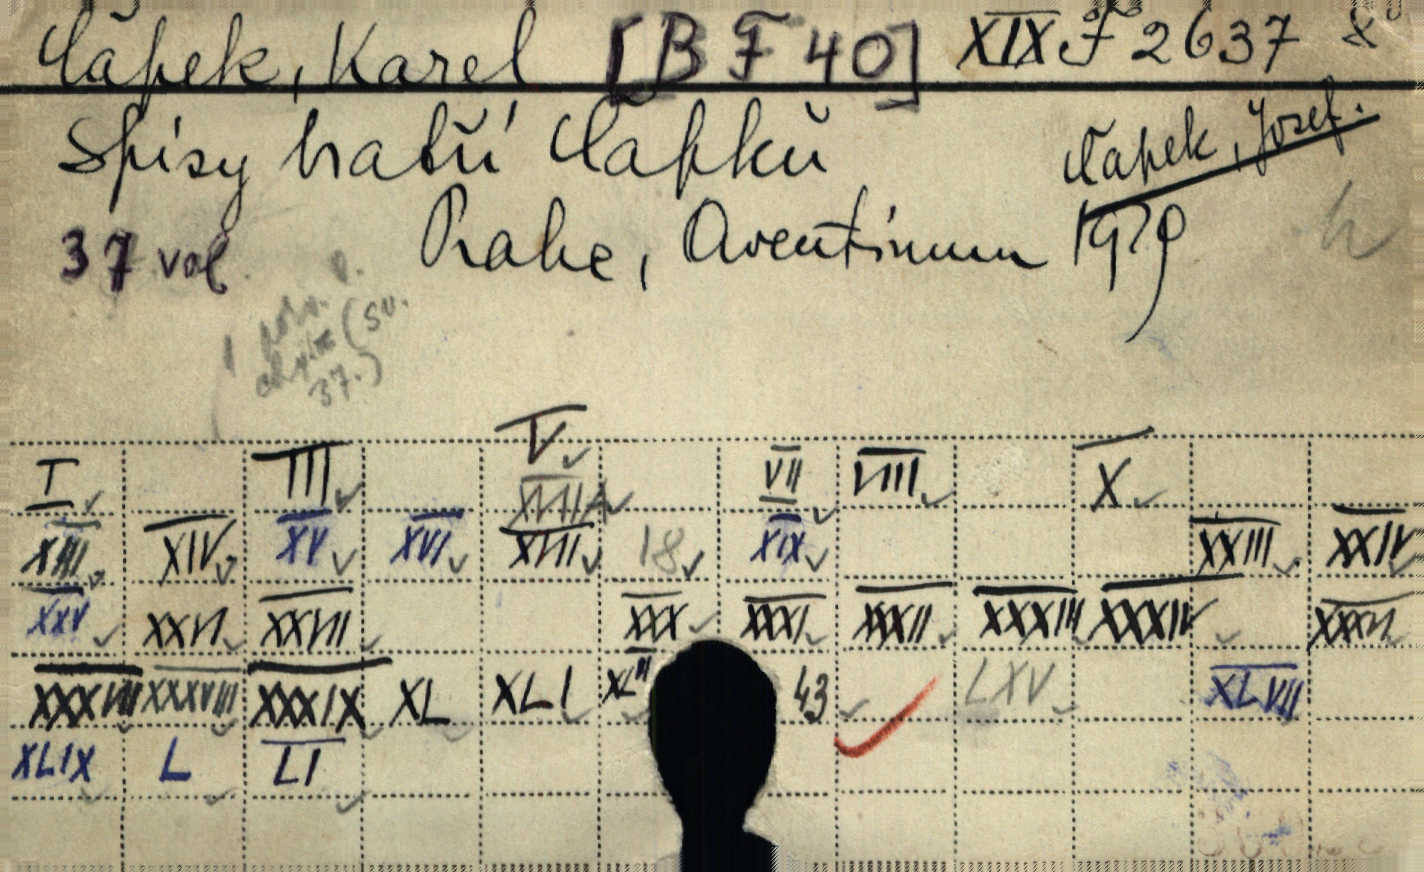 Čapek, Karel [BF40] XIX F 2637
Spisy bratří Čapků
Čapek, Josef.
37 vol Praha, Aventinum 1929
(sv.
37.)
V
I III VII VIII X
XVIIA
XIII XIV XV XVI XVII 18 XIX XXIII XXIV
XXV XXVI XXVII XXX XXXI XXXII XXXIII XXXIV XXXVI
XXXVII XXXVIII XXXIX XL XLI XLII 43 LXV XLVII
XLIX L LI